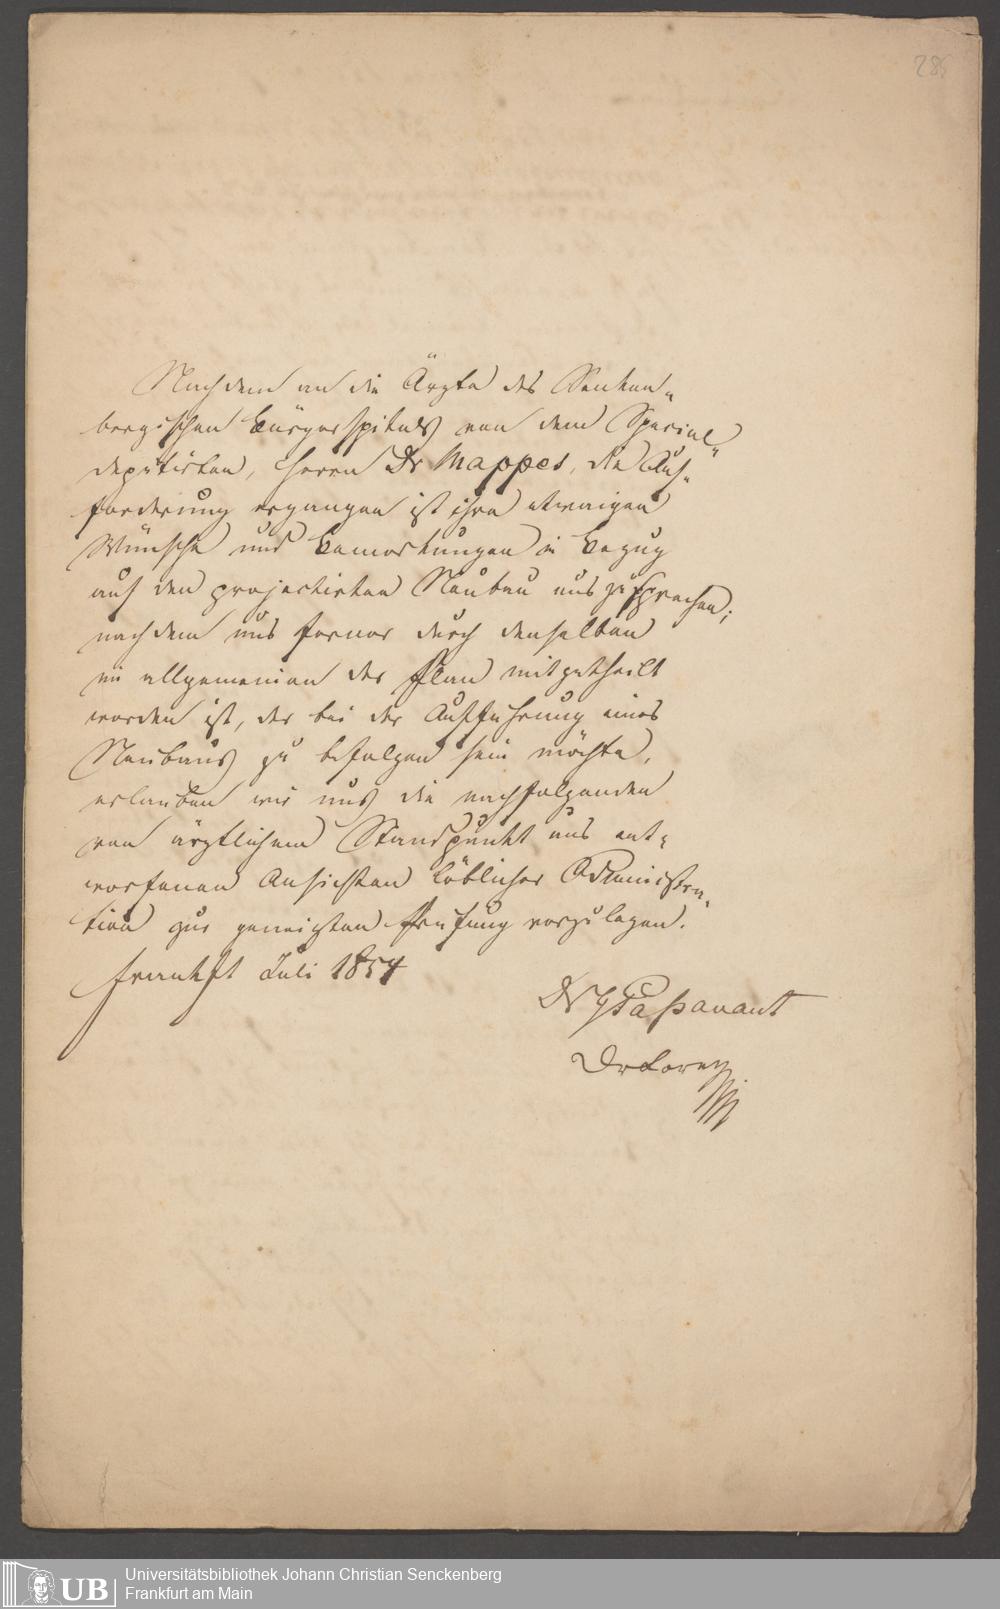 285
Nachdem an die Ärzte des Senken-
bergischen Bürgerspitals von dem Special-
deputirten, Herrn Dr Mappes, die Auf-
forderung ergangen ist ihre etwaigen
Wünsche und Bemerkungen in Bezug
auf den projectirten Neubau auszusprechen;
nachdem uns ferner durch denselben
im allgemeinen der Plan mitgetheilt
worden ist, der bei der Aufführung eines
Neubaus zu befolgen sein möchte,
erlauben wir uns die nachfolgenden
von ärztlichem Standpunkt aus ent-
worfenen Ansichten löblicher Administra-
tion zur geneigten Prüfung vorzulegen.
Frankft Juli 1854
Dr G Passavant
Dr Lorey
UB
Universitätsbibliothek Johann Christian Senckenberg
Frankfurt am Main